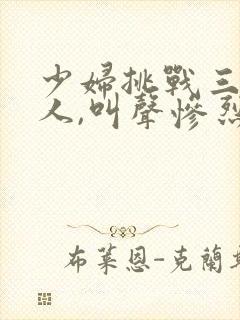 少婦挑戰三
人,叫聲慘烈
布萊恩-克蘭